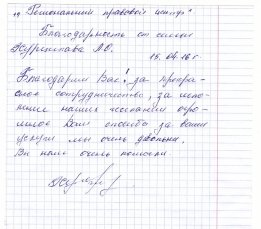 "Региональный правовой центр"
Благодарность от семьи
15.04.16 г.
Благодарим Вас! за прекрас-
ное сотрудничество, за испо-
нение наших желаний огро-
мное Вам спасибо за ваши
услуги мы очень довольны.
Вы нам очень помогли.